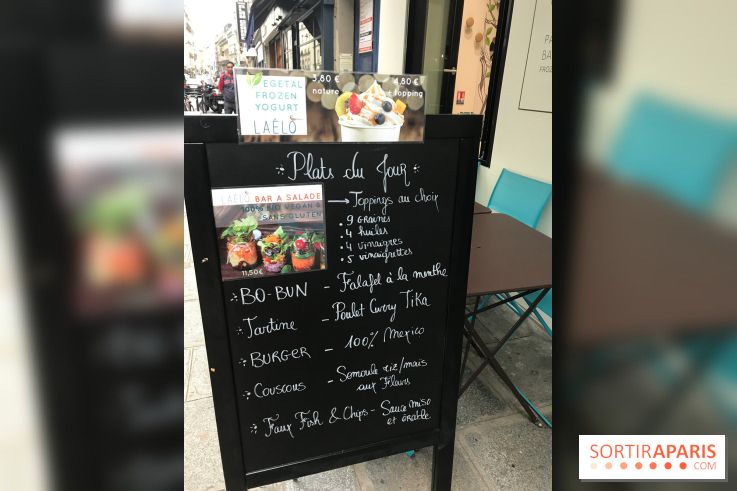 3,80 €
nature
4,80 €
+ topping
EGETAL
FROZEN
YOGURT
LAÉLO
Plats du Jour
LAÉLO BAR A SALADE
100% BIO VEGAN &
SANS GLUTEN
11,50€
→ Toppings au choix
. 9 GRAINES
. 4 huiles
. 4 vinaigres
. 5 vinaigrettes
BO-BUN - Falafel à la menthe
Tartine - Poulet Curry Tika
BURGER - 100% Mexico
Couscous - Semoule riz/maïs
aux Fleurs
Faux Fish & Chips - Sauce miso
et érable
SORTIRAPARIS
.COM